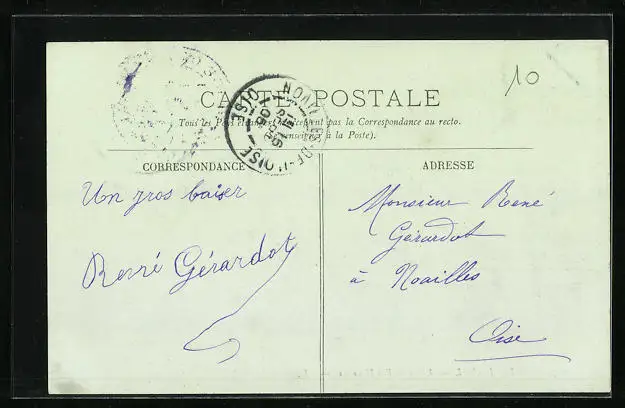 10
CARTE POSTALE
Tous les Pays étrangers n'acceptent pas la Correspondance au recto.
(Se renseigner à la Poste).
NOAILLES-DE-L'OISE
OISE
CORRESPONDANCE
Un gros baiser
René Gérardot
ADRESSE
Monsieur René
Gérardot
à Noailles
Oise